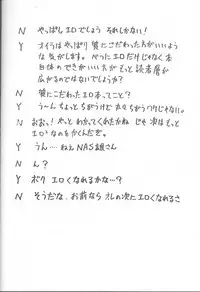 N やっぱしエロでしょう それしかない!
Y オイラはやっぱり 質にこだわった方がいいよう
な気がします。べつにエロだけじゃなく本
自体のできがいい方が もっと読者層が
広がるのではないでしょうか?
N 質にこだわったエロ本ってこと?
Y う〜んちょっとちがうけど
N おお!やっとわかってくれたかね じゃ 次はもっと
エロいなのをかくんだぞ。
Y うん…ねぇNAS組さん
N ん?
Y ボク エロくなれるかな…?
N そうだな、お前なら オレの次にエロくなれるさ